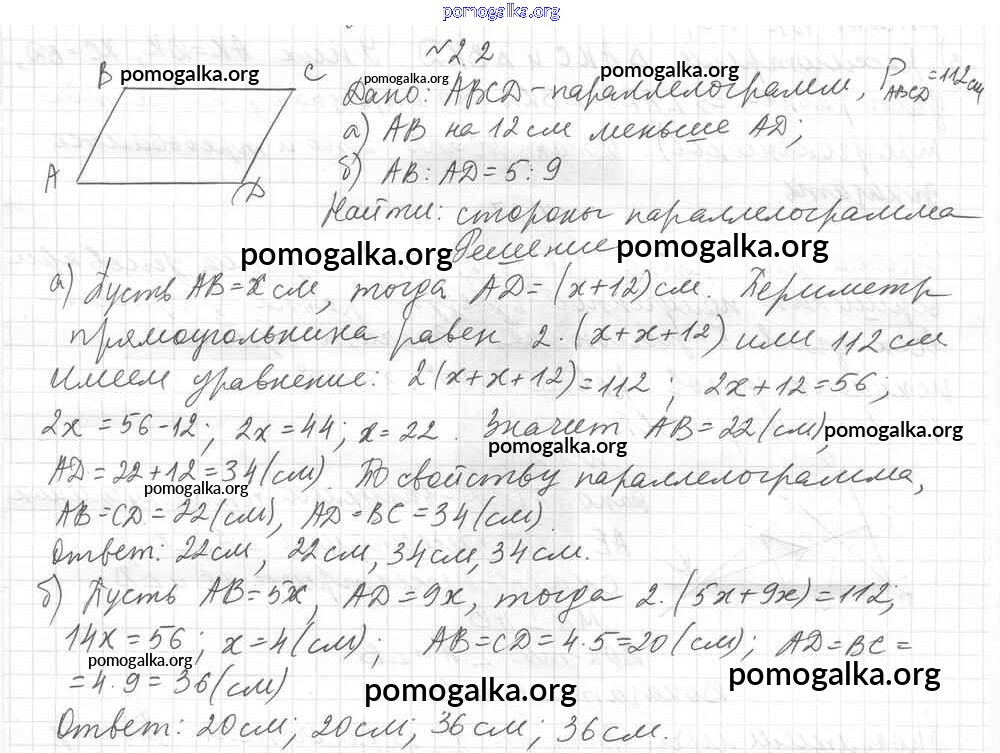 pomogalka.org
№2.2
B pomogalka.org C
A D
pomogalka.org pomogalka.org
Дано: ABCD-параллелограмм, P ABCD = 112 см
а) AB на 12 см меньше AD;
б) AB : AD = 5 : 9
Найти: стороны параллелограмма
pomogalka.org Решение pomogalka.org
а) Пусть AB = x см, тогда AD = (x+12) см. Периметр
прямоугольника равен 2·(x+x+12) или 112 см
Имеем уравнение: 2(x+x+12)=112; 2x+12=56;
2x=56-12; 2x=44; x=22. Значит AB=22(см), pomogalka.org
pomogalka.org
AD=22+12=34(см). По свойству параллелограмма,
pomogalka.org
AB=CD=22(см), AD=BC=34(см).
Ответ: 22см, 22см, 34см, 34см.
б) Пусть AB=5x, AD=9x, тогда 2·(5x+9x)=112;
14x=56; x=4(см); AB=CD=4·5=20(см); AD=BC=
pomogalka.org
=4·9=36(см)
pomogalka.org pomogalka.org
Ответ: 20см; 20см, 36см; 36см.